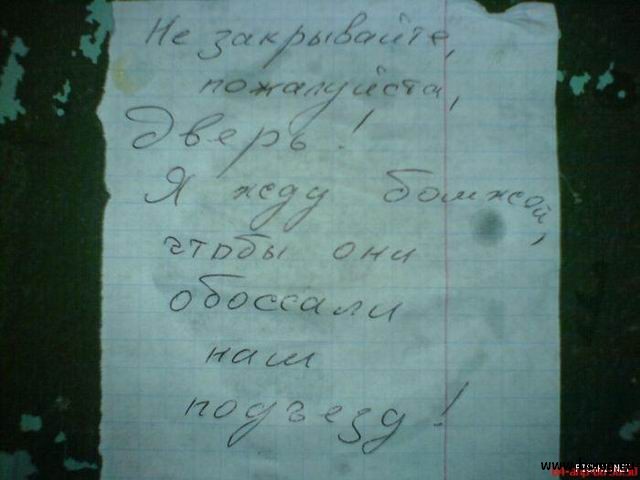 Не закрывайте,
пожалуйста,
Дверь!
Я жду бомжей,
чтобы они
обоссали
наш
подъезд!